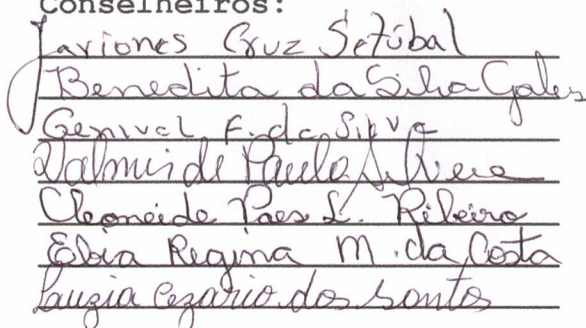 Conselheiros:
Lariones Cruz Setúbal
Benedita da Silva Gales
Genival F. da Silva
Valmir de Paulo Silvera
Cleoneide Paes L. Ribeiro
Ebia Regina M. da Costa
Lauzia Cezario dos Santos